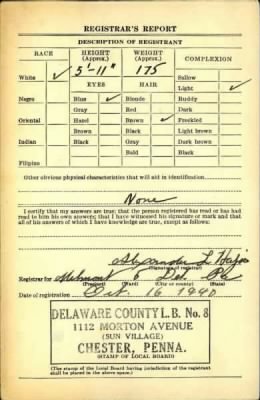 REGISTRAR'S REPORT
DESCRIPTION OF REGISTRANT
RACE HEIGHT (Approx.) WEIGHT (Approx.) COMPLEXION
White ✓ 5'-11" 175 Sallow
EYES HAIR Light ✓
Negro Blue ✓ Blonde Ruddy
Gray Red Dark
Oriental Hazel Brown ✓ Freckled
Brown Black Light brown
Indian Black Gray Dark brown
Bald Black
Filipino
Other obvious physical characteristics that will aid in identification
None
I certify that my answers are true; that the person registered has read or has had
read to him his own answers; that I have witnessed his signature or mark and that
all of his answers of which I have knowledge are true, except as follows:
Alexander L.
(Signature of registrar)
Registrar for 6 Del. Pa
(Precinct) (Ward) (City or county) (State)
Date of registration Oct. 16 1940
DELAWARE COUNTY L.B. No. 8
1112 MORTON AVENUE
(SUN VILLAGE)
CHESTER, PENNA.
(STAMP OF LOCAL BOARD)
(The stamp of the Local Board having jurisdiction of the registrant
shall be placed in the above space.)